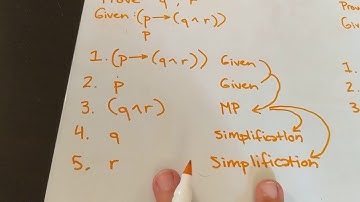 Prove q, r
Given: (p→(q∧r))
p
1. (p→(q∧r)) Given
2. p Given
3. (q∧r) MP
4. q Simplification
5. r Simplification
1.
2
3